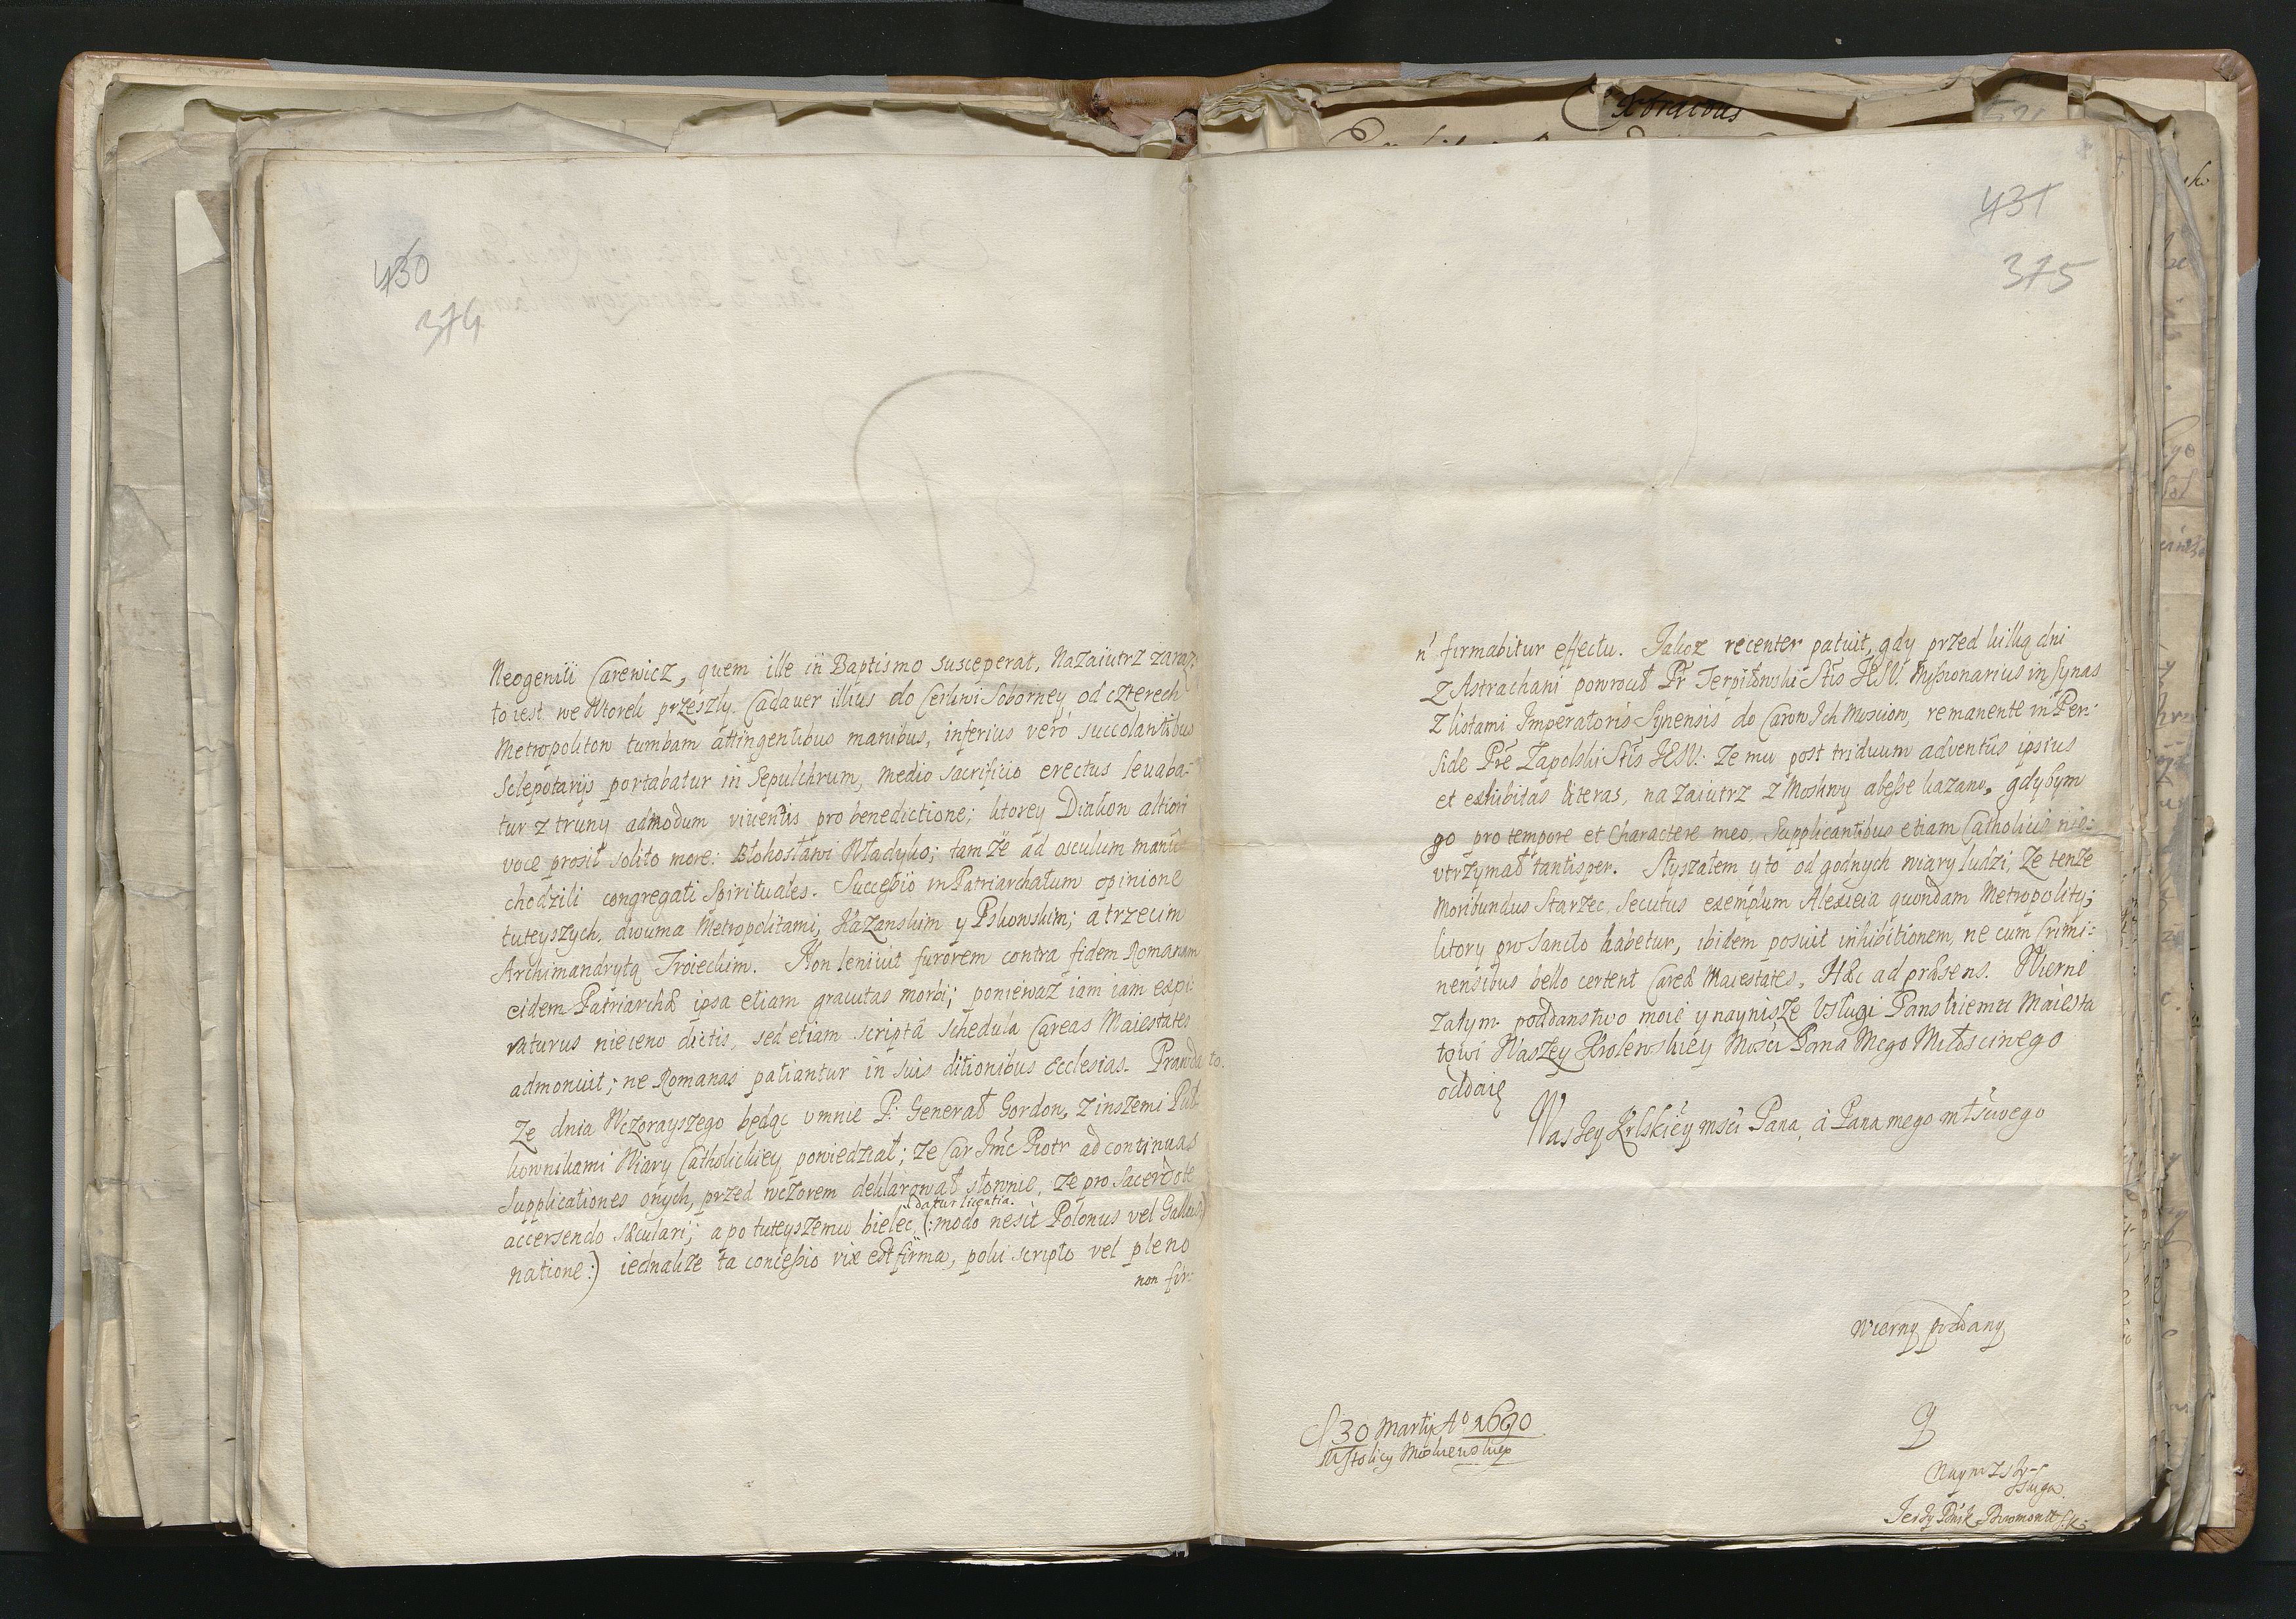 430
374
Neogeniti Carewicz, quem ille in Baptismo susceperat, Nazaiutrz zaraz
to iest we Wtorek przeszły. Cadauer illius do Cerkwi Soborney od czterech
Metropolitow tumbam attingentibus manibus, inferius verò succolantibus
Sclepotarijs portabatur in Sepulchrum, medio sacrificio erectus leuaba-
tur z truny admodum viuentis pro benedictione; ktorey Diakon altiori
voce prosił solito more: Błohosławi Władyko; tamże ad osculum manûs
chodzili congregati Spirituales. Successio in Patriarchatum opinione
tuteyszych, dwuma Metropolitami, Kazanskim y Pskowskim; a trzecim
Archimandrytą Troieckim. Non leniuit furorem contra fidem Romanam
eidem Patriarchæ ipsa etiam grauitas morbi; poniewaz iam iam expi-
raturus nieieno dictis, sed etiam scriptâ schedula Careas Maiestates
admonuit; ne Romanas patiantur in suis ditionibus Ecclesias. Prawda to.
Ze dnia Wczorayszego będąc v mnie P: Generał Gordon, z inszemi Puł-
kownikami Wiary Catholickiey powiedział; ze Car Jmć Piotr ad continuas
supplicationes onych, przed wczorem deklarował słownie, ze pro Sacerdote
datur licentia.
accersendo sæculari; a po tuteyszemu bielec, (: modo nesit Polonus vel Gallus
natione:) iednakze ta concessio vix est firma, poki scripto vel pleno
non fir:
431
375
n' firmabitur effectu. Jakoz recenter patuit, gdy przed kilką dni
z Astrachani powrocił Pr Terpiłowski Stis JESU. Missionarius in Synas
z listami Imperatoris Synensis do Carow Ich Mosciow, remanente in Per:
side Pre Zapolski Stis JESU: Ze mu post triduum adventûs ipsius
et exhibitas literas, na zaiutrz z Moskwy abesse kazano, gdybym
go pro tempore et Charactere meo, Supplicantibus etiam Catholicis nie:
vtrzymał tantisper. Słyszałem y to od godnych wiary ludzi, ze tenze
Moribundus Starzec, secutus exemplum Alexieia quondam Metropolity;
ktory pro Sancto habetur, ibidem posuit inhibitionem, ne cum Crimi:
nensibus bello certent Careæ Maiestates. Hæc ad præsens. Wierne
zatym poddanstwo moie y naynisze Vsługi Panskiemu Maiesta
towi Waszey Krolewskiey Mosci Pana Mego Miłosciwego
oddaię
Waszey Krlskiey msci Pana, à Pana mego młsciwego
Wierny poddany
y
Naynizszy
sługa
Jerzy Dnik Dowmontt
30 Martij Aº 1690
w Stolicy Moskiewskiey